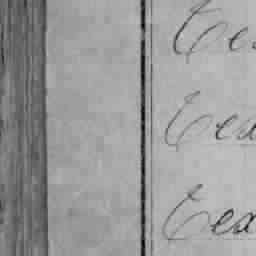 Te
Tex
Tex